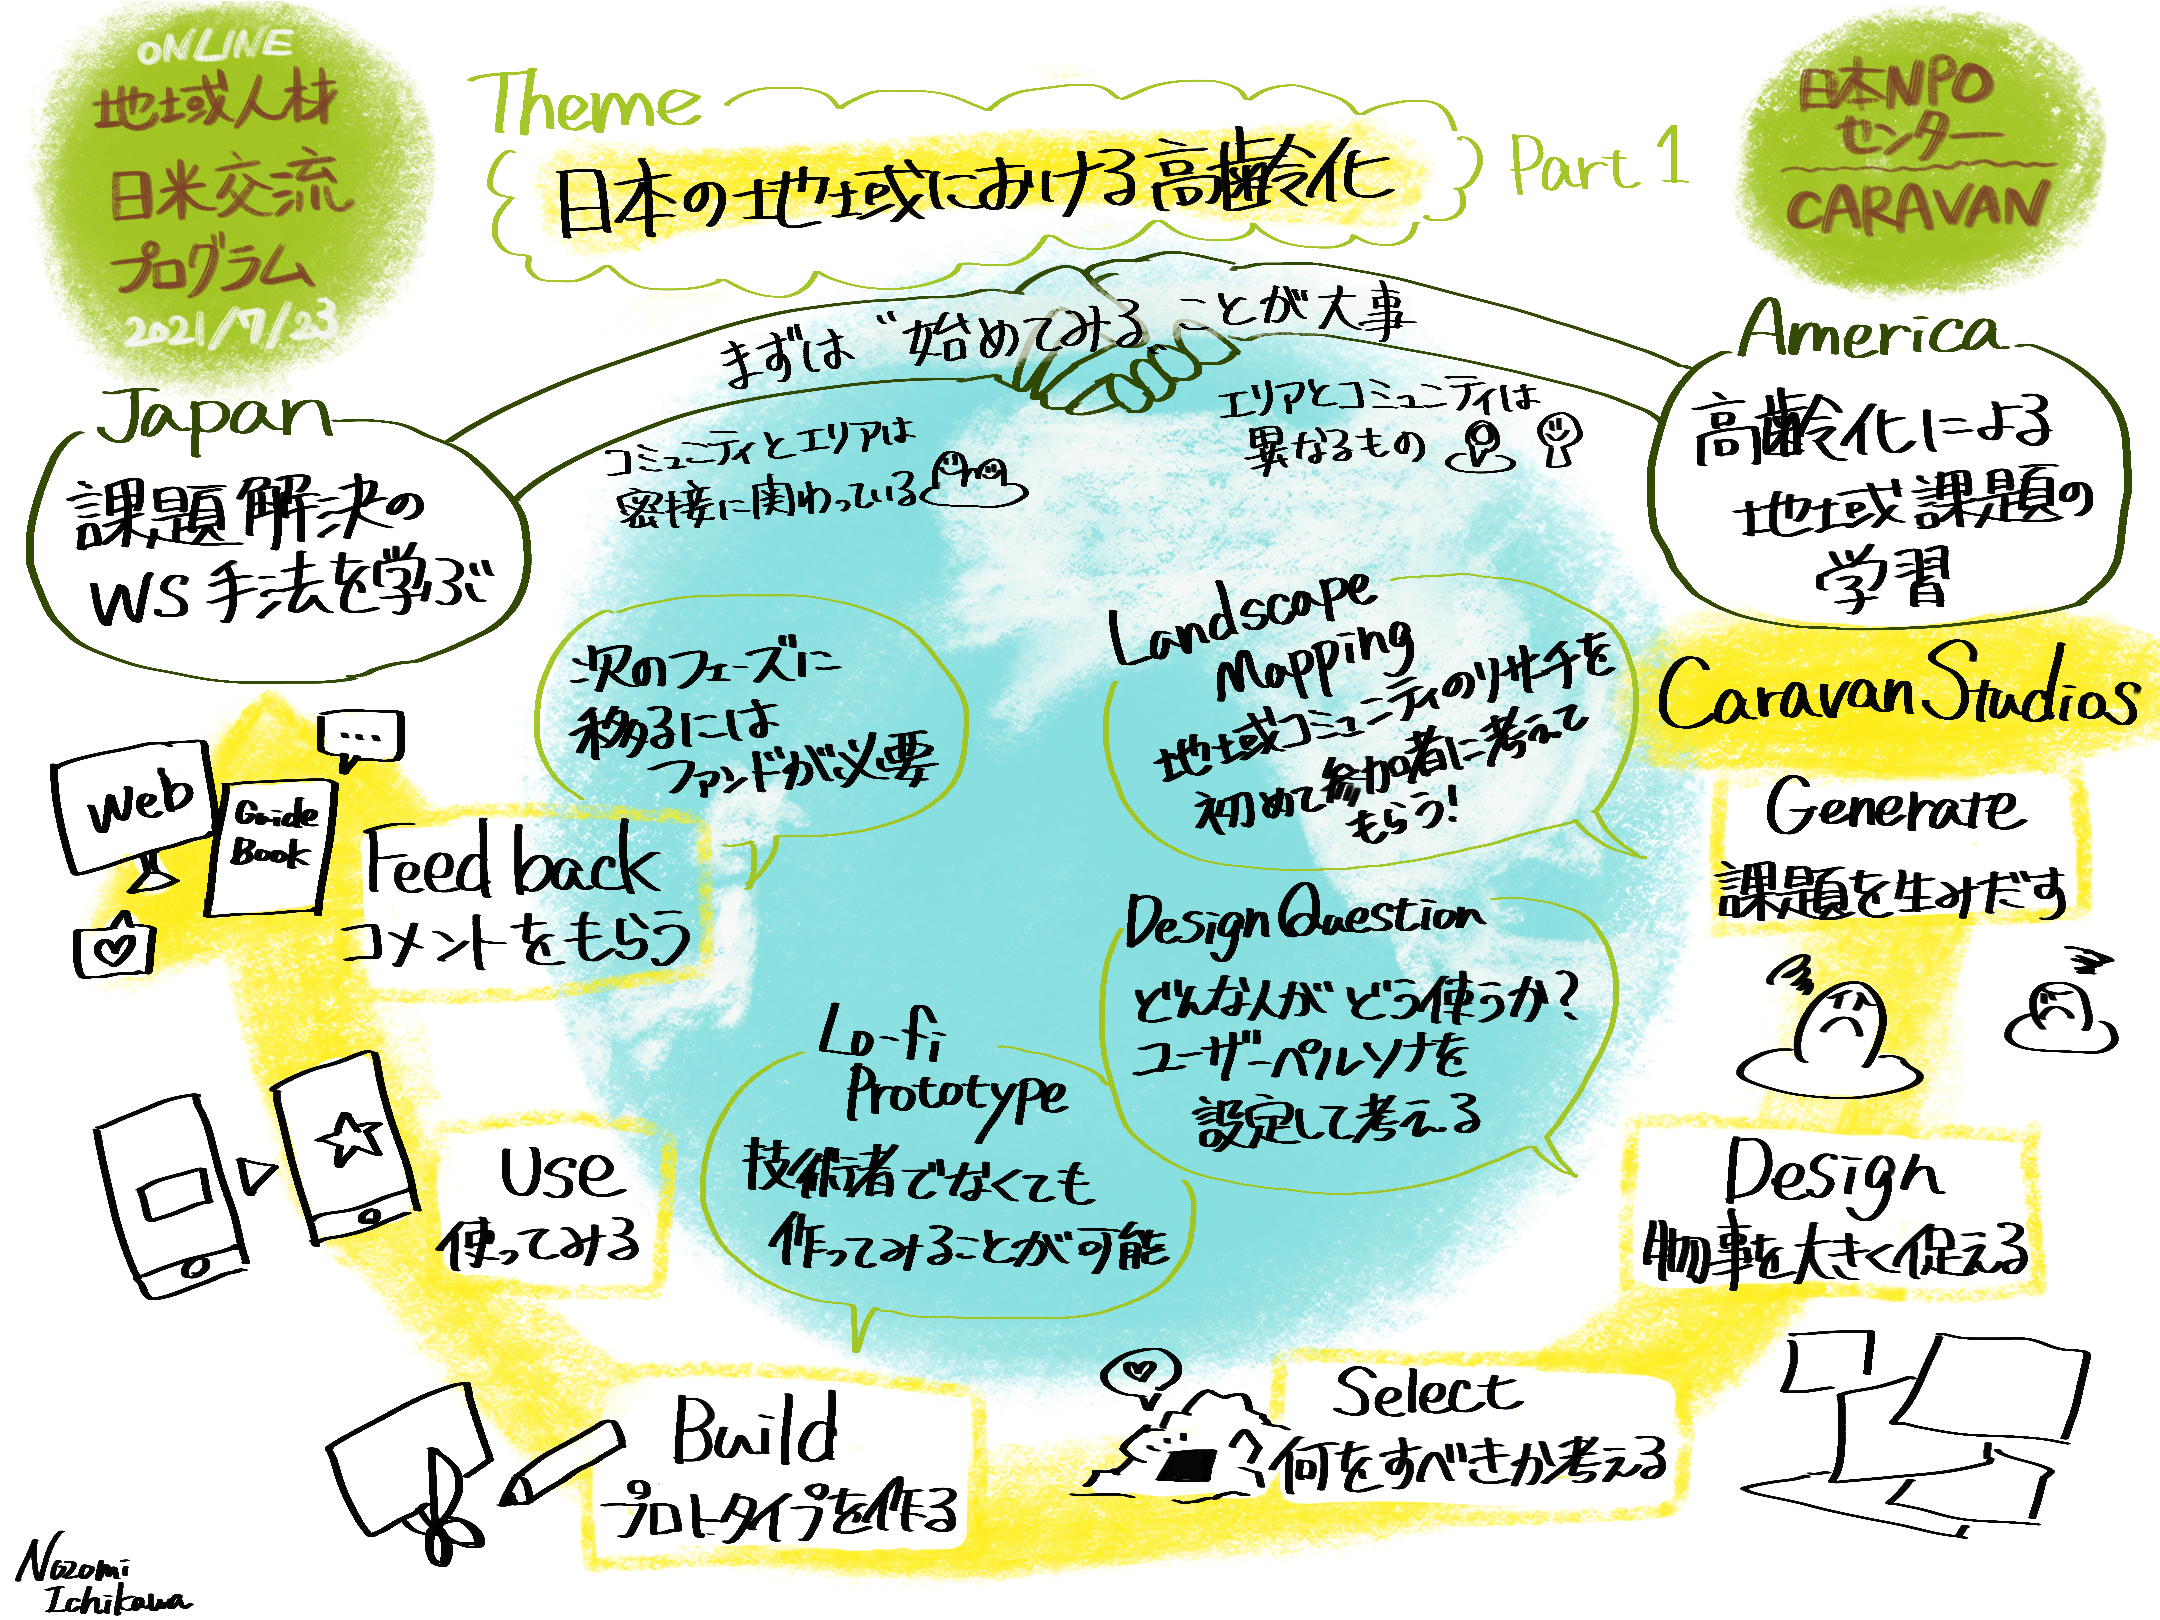 ONLINE
地域人材
日米交流
プログラム
2021/7/23
Theme
日本の地域における高齢化
Part 1
日本NPO
センター
CARAVAN
まずは“始めてみる”ことが大事
Japan
課題解決の
WS手法を学ぶ
America
高齢化による
地域課題の
学習
コミュニティとエリアは
密接に関わっている
エリアとコミュニティは
異なるもの
Caravan Studios
Generate
課題を生みだす
Landscape
Mapping
地域コミュニティのリサーチを
初めて参加者に考えて
もらう!
Design
物事を大きく促える
Design Question
どんな人がどう使うか?
ユーザーペルソナを
設定して考える
Select
何をすべきか考える
Build
プロトタイプを作る
Lo-fi
Prototype
技術者でなくても
作ってみることが可能
Use
使ってみる
Feedback
コメントをもらう
次のフェーズに
移るには
ファンドが必要
Web
Guide
Book
...
Nozomi
Ichikawa